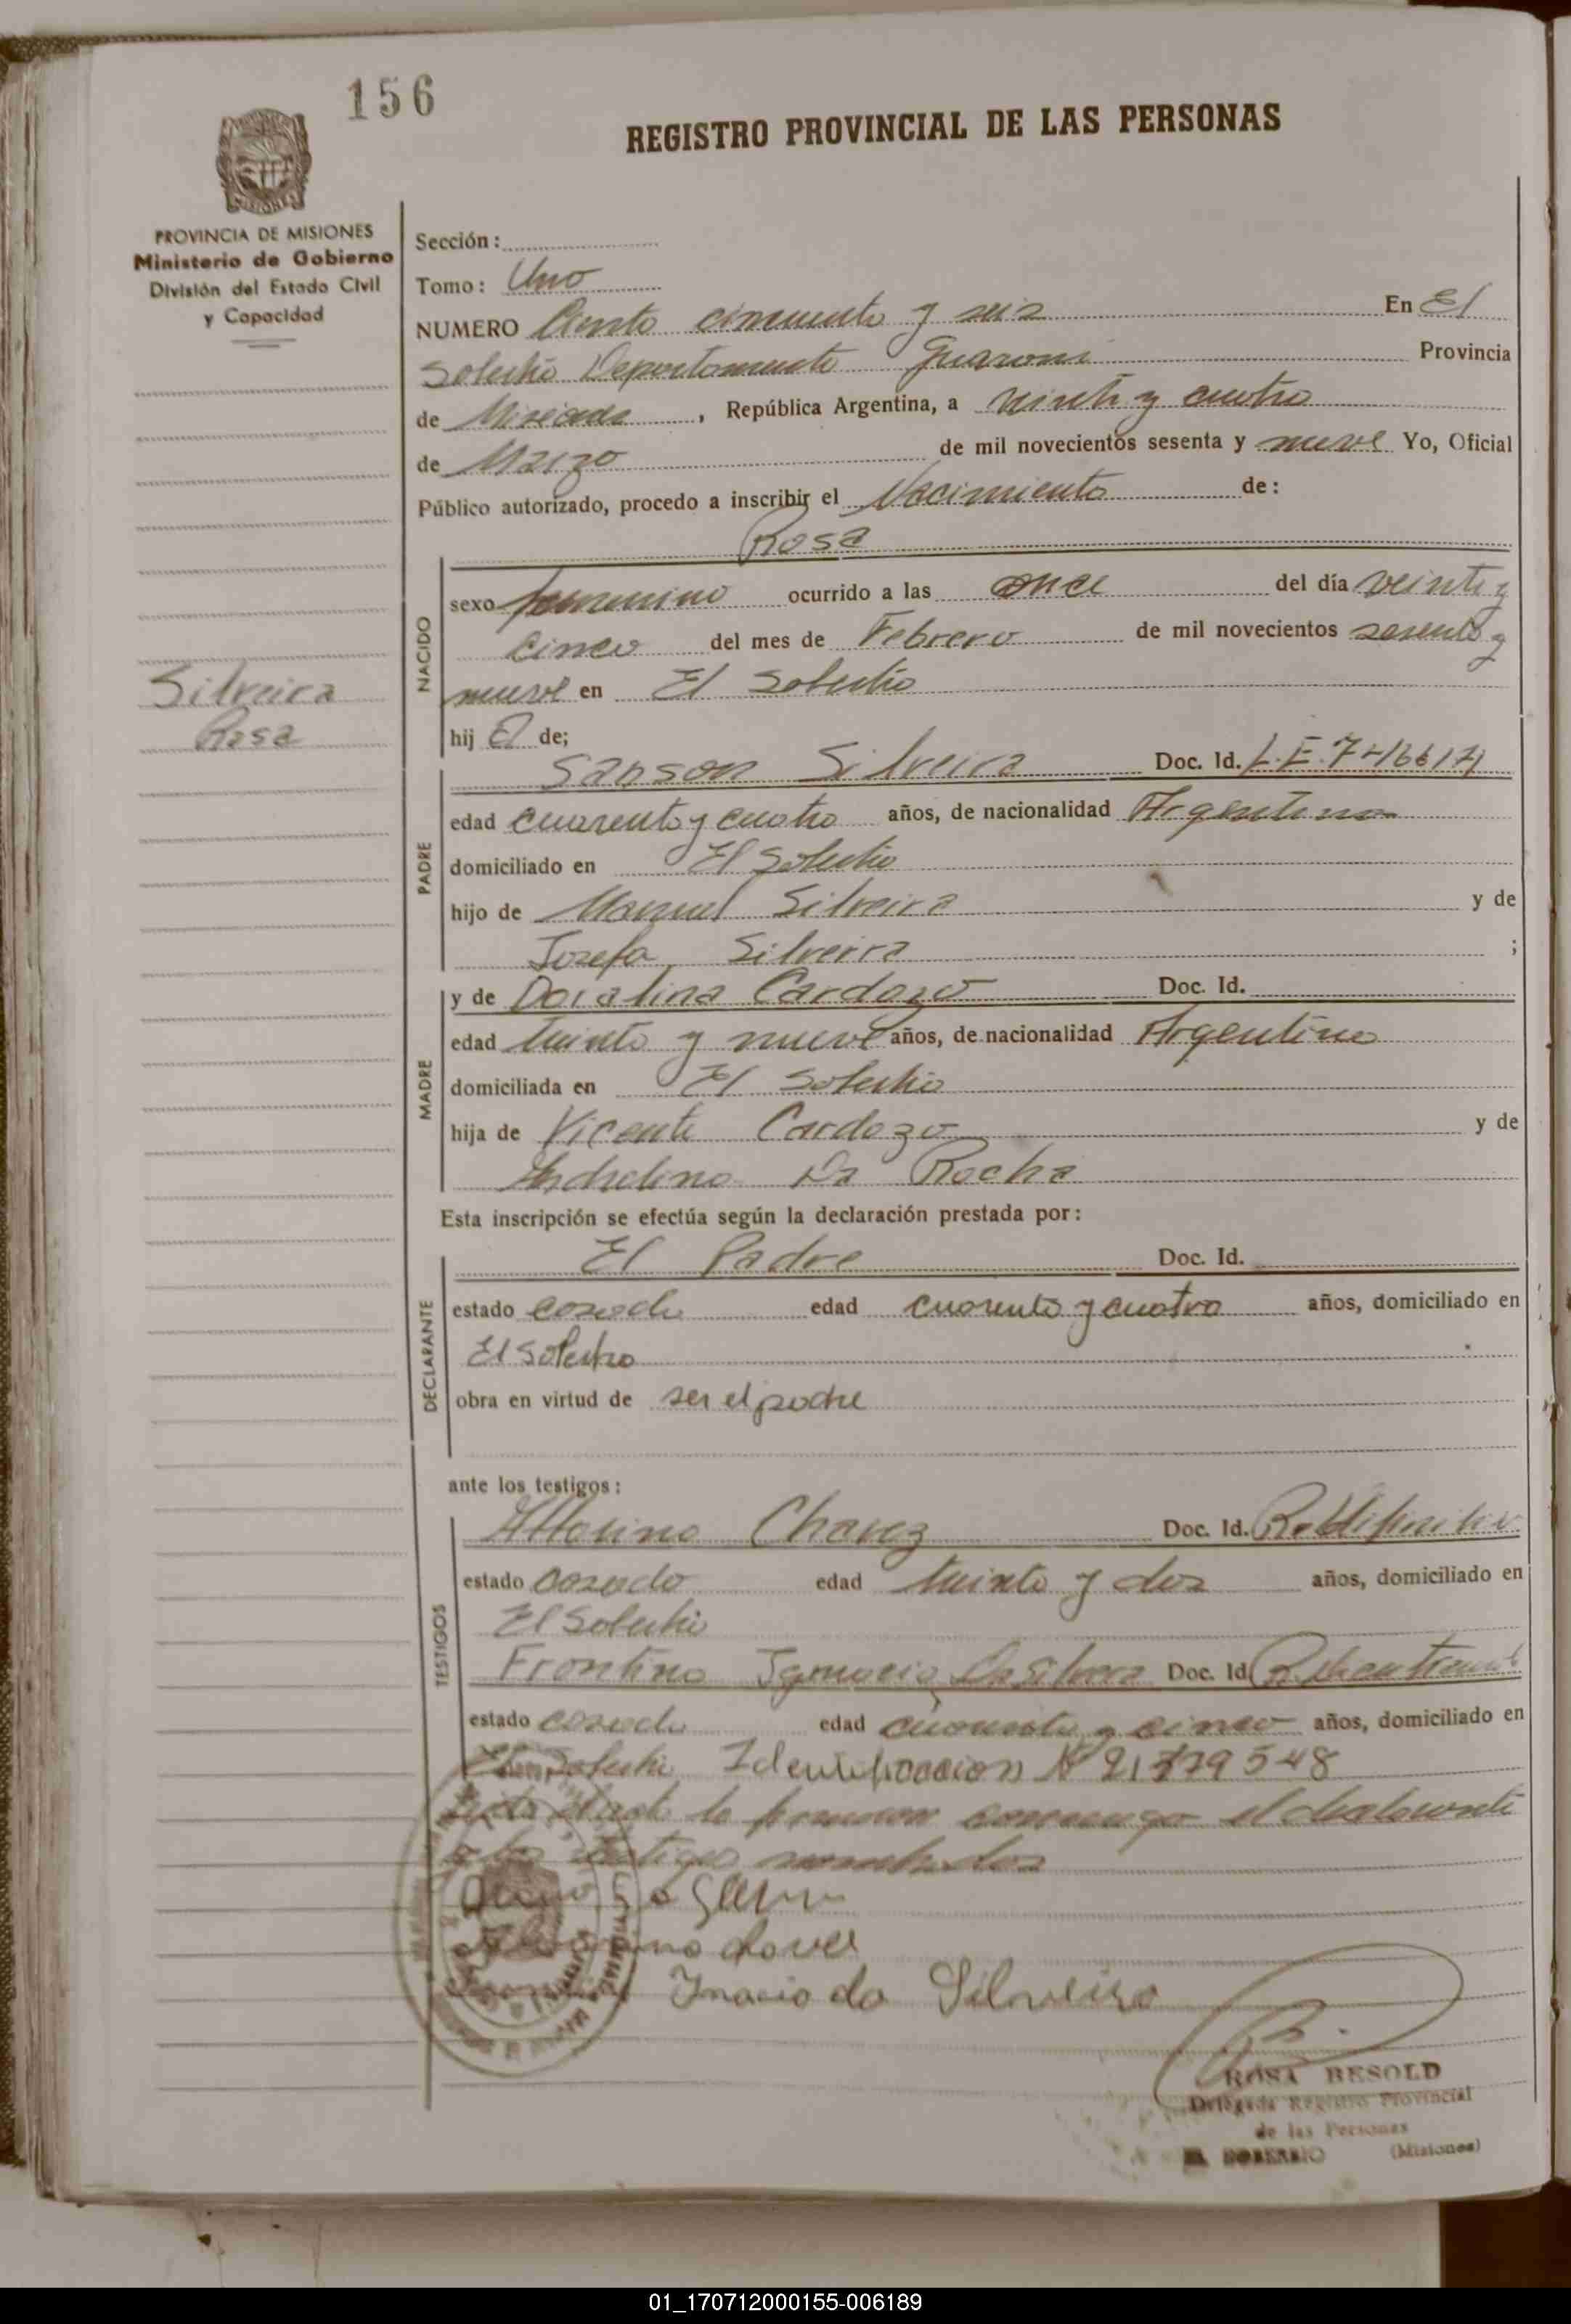 156
REGISTRO PROVINCIAL DE LAS PERSONAS
PROVINCIA DE MISIONES
Ministerio de Gobierno
División del Estado Civil
y Capacidad
Sección:
Tomo: Uno
NUMERO Ciento cincuenta y seis En El
Soberbio Departamento Guarani Provincia
de Misiones, República Argentina, a veinte y cuatro
de Marzo de mil novecientos sesenta y nueve Yo, Oficial
Público autorizado, procedo a inscribir el Nacimiento de:
Rosa
NACIDO
sexo femenino ocurrido a las once del día veinte y
cinco del mes de Febrero de mil novecientos sesenta y
nueve en El Soberbio
Silveira
Rosa
hij a de;
PADRE
Sanson Silveira Doc. Id. L.E.
edad cuarenta y cuatro años, de nacionalidad Argentina
domiciliado en El Soberbio
hijo de Manuel Silveira y de
Josefa Silveira ;
MADRE
y de Doralina Cardozo Doc. Id.
edad treinta y nueve años, de nacionalidad Argentina
domiciliada en El Soberbio
hija de Vicente Cardozo y de
Da Rocha
Esta inscripción se efectúa según la declaración prestada por:
DECLARANTE
El Padre Doc. Id.
estado casado edad cuarenta y cuatro años, domiciliado en
El Soberbio
obra en virtud de ser el padre
ante los testigos:
TESTIGOS
Chavez Doc. Id.
estado casado edad treinta y dos años, domiciliado en
El Soberbio
Frontino Ignacio Da Silveira Doc. Id.
estado casado edad cuarenta y cinco años, domiciliado en
El Soberbio Identificacion Nº
Leida el acta la firman conmigo el declarante
y los testigos nombrados
Ignacio da Silveira
ROSA BESOLD
Delegada Registro Provincial
de las Personas
EL SOBERBIO (Misiones)
01_170712000155-006189